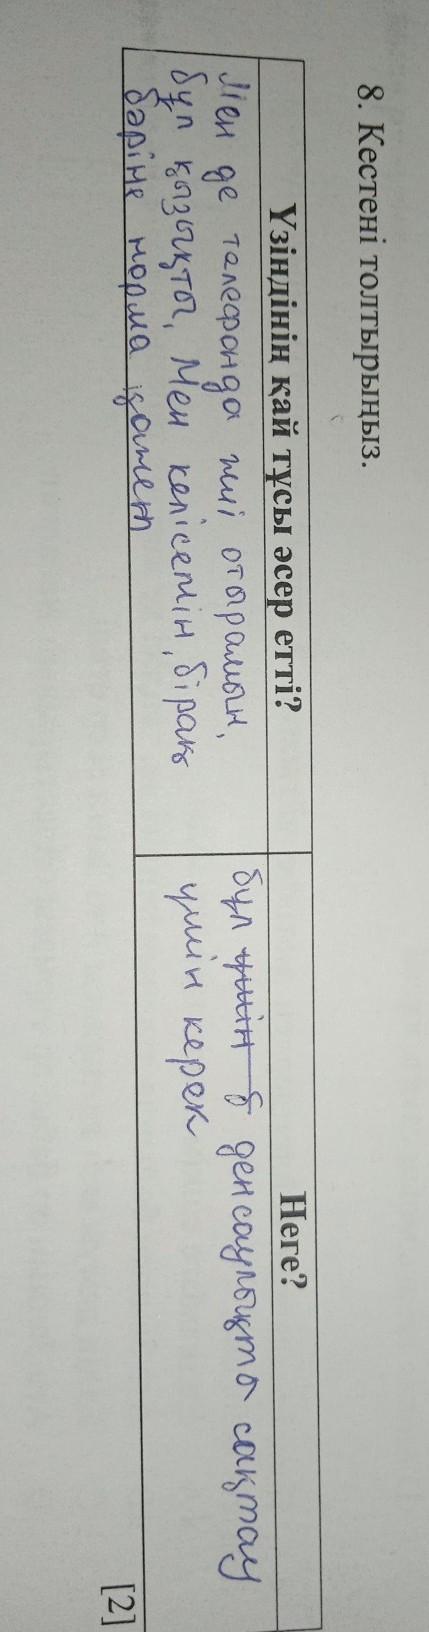 8. Кестені толтырыңыз.
Үзіндінің қай тұсы әсер етті?
Мен де телефонда жиі отырамын,
бұл қызықты, Мен келісемін, бірақ
бәріне норма қажет
Неге?
бұл үшін б денсаулықты сақтау
үшін керек
[2]